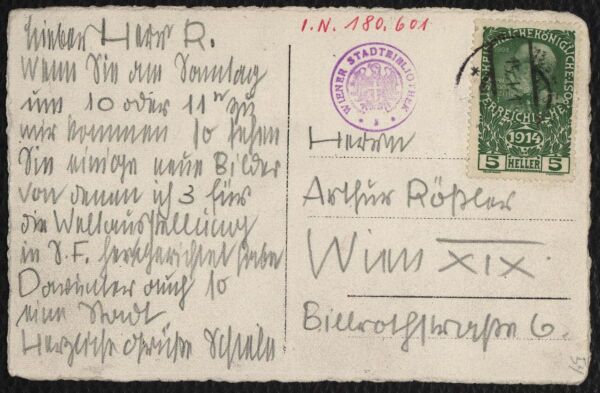 lieber Herr R.
Wenn Sie am Sonntag
um 10 oder 11ʰ zu
mir kommen so sehen
Sie einige neue Bilder
von denen ich 3 für
die Weltausstellung
in S.F. hergerichtet habe
Darunter auch so
eine Stadt
Herzliche Grüße Schiele
I.N. 180.601
WIENER STADTBIBLIOTHEK
1914
5 HELLER 5
Herrn
Arthur Rößler
Wien XIX.
Billrothstraße 6.